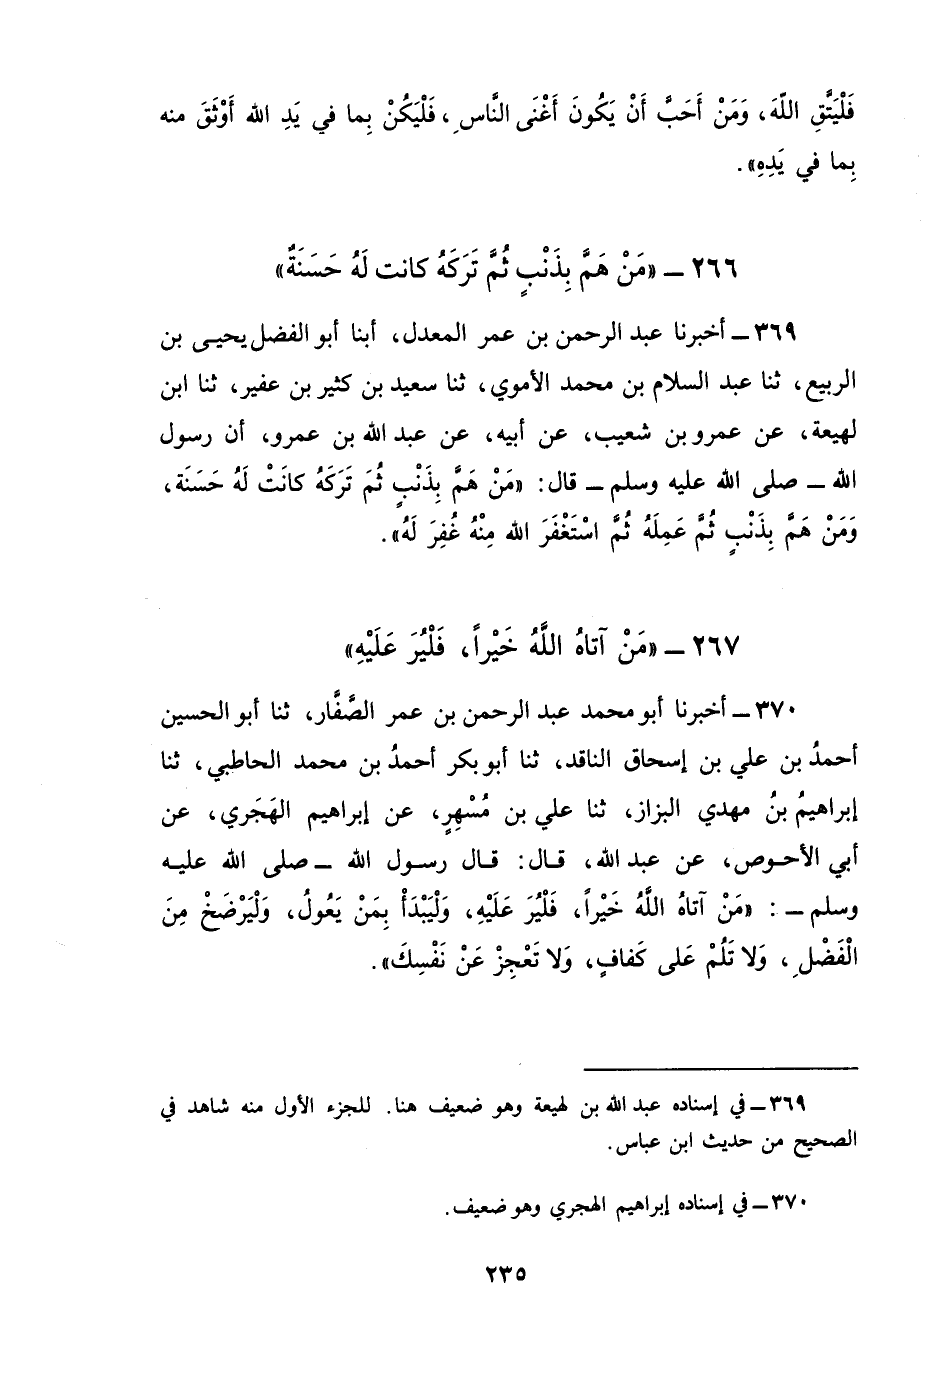 فَلْيَتَّقِ اللّهَ، وَمَنْ أَحَبَّ أَنْ يَكُونَ أَغْنَى النَّاسِ، فَلْيَكُنْ بِما في يَدِ الله أَوْثَقَ منه
بِما في يَدِهِ».
٢٦٦ ــ «مَنْ هَمَّ بِذَنْبٍ ثُمَّ تَرَكَهُ كانت لَهُ حَسَنَةٌ»
٣٦٩ ــ أخبرنا عبد الرحمن بن عمر المعدل، أبنا أبو الفضل يحيى بن
الربيع، ثنا عبد السلام بن محمد الأموي، ثنا سعيد بن كثير بن عفير، ثنا ابن
لهيعة، عن عمرو بن شعيب، عن أبيه، عن عبد الله بن عمرو، أن رسول
الله ــ صلى الله عليه وسلم ــ قال: «مَنْ هَمَّ بِذَنْبٍ ثُمَ تَرَكَهُ كانَتْ لَهُ حَسَنَة،
وَمَنْ هَمَّ بِذَنْبٍ ثُمَّ عَمِلَهُ ثُمَّ اسْتَغْفَرَ الله مِنْهُ غُفِرَ لَهُ».
٢٦٧ ــ «مَنْ آتاهُ اللَّهُ خَيْراً، فَلْيُرَ عَلَيْهِ»
٣٧٠ ــ أخبرنا أبو محمد عبد الرحمن بن عمر الصَّفَّار، ثنا أبو الحسين
أحمدُ بن علي بن إسحاق الناقد، ثنا أبو بكر أحمدُ بن محمد الحاطبي، ثنا
إبراهيمُ بنُ مهدي البزاز، ثنا علي بن مُسْهِرٍ، عن إبراهيم الهَجَري، عن
أبي الأحوص، عن عبد الله، قال: قال رسول الله ــ صلى الله عليه
وسلم ــ : «مَنْ آتاهُ اللَّهُ خَيْراً، فَلْيُرَ عَلَيْهِ، وَلْيَبْدَأْ بِمَنْ يَعُولُ، وَلْيَرْضَخْ مِنَ
الْفَضْلِ، وَلا تَلُمْ عَلى كَفافٍ، وَلا تَعْجِزْ عَنْ نَفْسِكَ».
٣٦٩ ــ في إسناده عبد الله بن لهيعة وهو ضعيف هنا. للجزء الأول منه شاهد في
الصحيح من حديث ابن عباس.
٣٧٠ ــ في إسناده إبراهيم الهجري وهو ضعيف.
٢٣٥